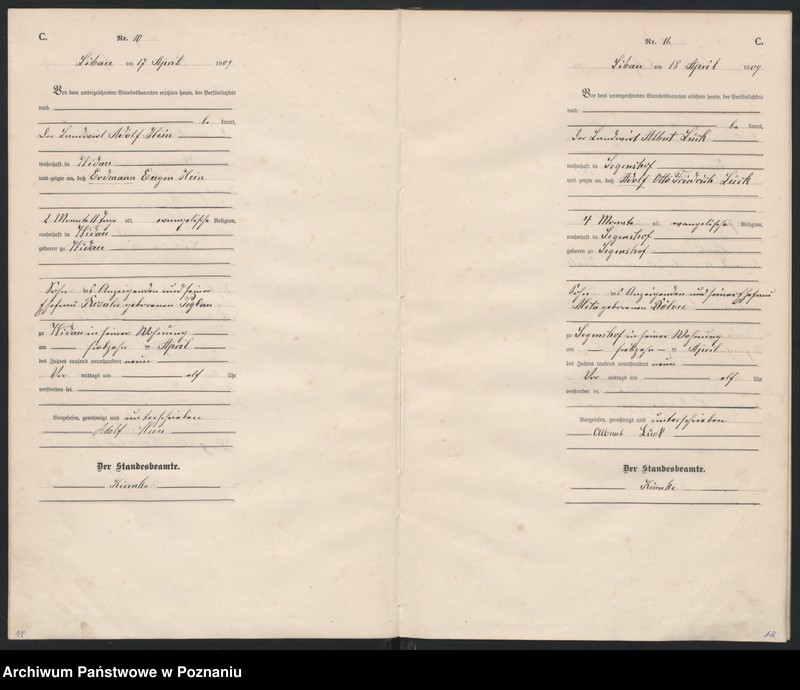 C.
Nr. 10
Libau am 17 April 1909
Vor dem unterzeichneten Standesbeamten erschien heute, der Persönlichkeit
nach
be kannt,
der Landwirt Adolf Hein
wohnhaft in Widau
und zeigte an, daß Erdmann Eugen Hein
2 Monate alt, evangelische Religion,
wohnhaft in Widau
geboren zu Widau
Sohn des Anzeigenden und seiner
Ehefrau geborenen
zu Widau in seiner Wohnung
am siebzehn ten April
des Jahres tausend neunhundert neun
Vor mittags um elf Uhr
verstorben sei.
Vorgelesen, genehmigt und unterschrieben
Adolf Hein
Der Standesbeamte.
11
Nr. 11
C.
Libau am 18 April 1909
Vor dem unterzeichneten Standesbeamten erschien heute, der Persönlichkeit
nach
be kannt,
der Landwirt Albert Lück
wohnhaft in
und zeigte an, daß Adolf Otto Friedrich Lück
4 Monate alt, evangelische Religion,
wohnhaft in
geboren zu
Sohn des Anzeigenden und seiner Ehefrau
geborenen
zu in seiner Wohnung
am siebzehn ten April
des Jahres tausend neunhundert neun
Vor mittags um elf Uhr
verstorben sei.
Vorgelesen, genehmigt und unterschrieben
Albert Lück
Der Standesbeamte.
12
Archiwum Państwowe w Poznaniu